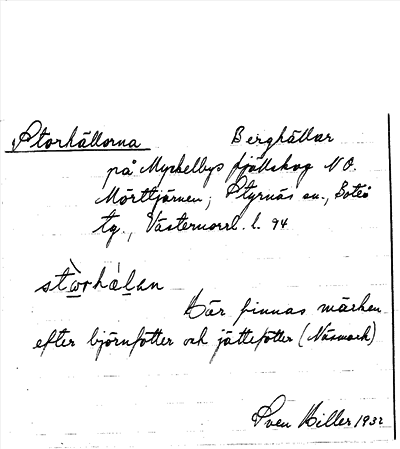 Storhällorna Berghällar
på Myckelbys fjällskog N O.
Mörttjärnen, Styrnäs sn., Boteå
tg., Västernorrl. l. 94
stòrhälan
Här finnas märken
efter björnfötter och jättefötter (Näsmark)
Sven Hiller 1932